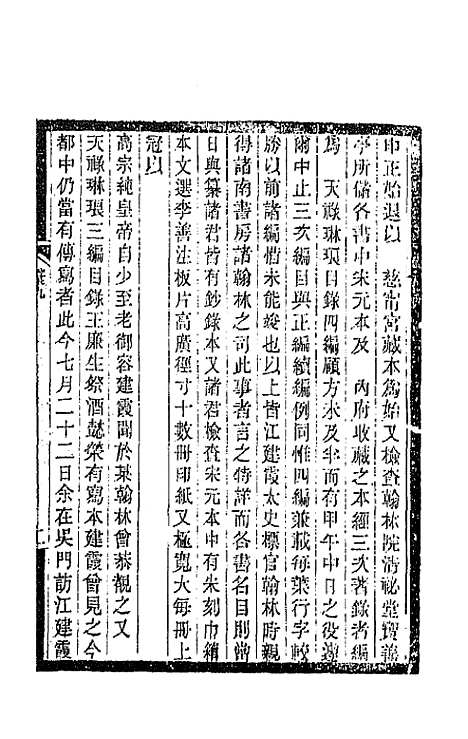 印正始退以　慈甯宮藏本爲始又檢查翰林院清祕堂寶善
亭所儲各書中宋元本及　內府收藏之本經三次著錄者編
爲　天祿琳琅目錄四編顧方未及半而有甲午中日之役遽
爾中止三次編目與正編續編例同惟四編兼載每葉行字較
勝以前諸編惜未能竣也以上皆江建霞太史標官翰林時親
得諸南書房諸翰林之司此事者言之特詳而各書名目則當
日與纂諸君皆有鈔錄本又諸君檢查宋元本中有宋刻巾箱
本文選李善注板片高廣徑寸十數冊印紙又極寬大每冊上
冠以
高宗純皇帝自少至老御容建霞聞於某翰林曾恭覩之又
天祿琳琅三編目錄王廉生祭酒懿榮有寫本建霞曾見之今
都中仍當有傳寫者此今七月二十二日余在吳門訪江建霞